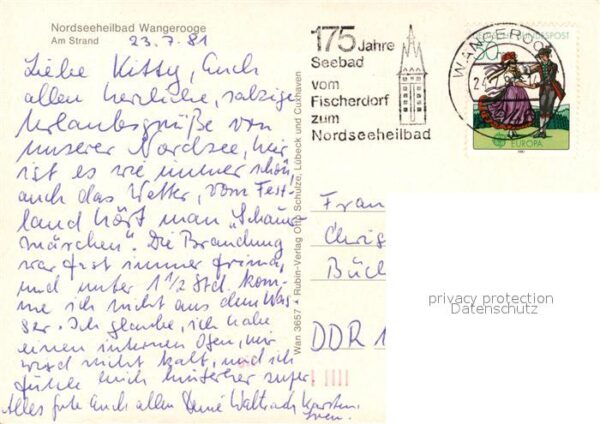 Nordseeheilbad Wangerooge
Am Strand
23.7.81
Liebe Kitty, Euch
allen herzliche, salzige
Urlaubsgrüße von
unserer Nordsee, hier
ist es wie immer schön,
auch das Wetter, vom Fest-
land hört man "Schauer-
märchen". Die Brandung
war fast immer prima,
und unter 1 1/2 Std. kom-
me ich nicht aus dem Was-
ser. Ich glaube, ich habe
einen internen Ofen, mir
wird nicht kalt, und ich
fühle mich hinterher super.
Alles Gute Euch allen Deine Waltraud Karsten
Sven.
Wan 3657 * Rubin-Verlag Otto Schulze, Lübeck und Cuxhaven
175 Jahre
Seebad
vom
Fischerdorf
zum
Nordseeheilbad
WANGEROO
2
BUNDESPOST
EUROPA
1981
Frau
Chris
Büch
DDR 1
privacy protection
Datenschutz